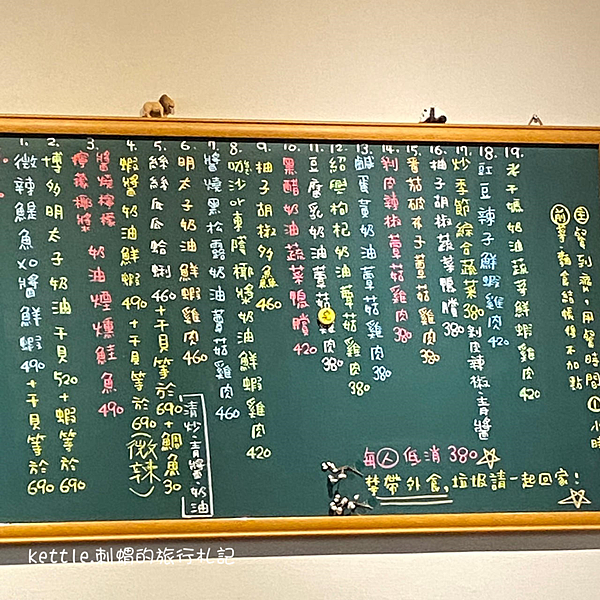 1. 微辣鯷魚XO醬鮮蝦490+干貝等於690
2. 博多明太子奶油干貝520+蝦等於690
3. 奶油煙燻鮭魚490
4. 蝦醬奶油鮮蝦490+干貝等於690(微辣)
5. 絲絲瓜瓜蛤蜊460+干貝等於690+鯛魚30
6. 明太子奶油鮮蝦雞肉460
7. 醬燒黑松露奶油蘑菇雞肉460
8. 叻沙or東蔭椰漿奶油鮮蝦雞肉420
9. 柚子胡椒多魚460
10. 黑醋奶油蔬菜鴨膯420
11. 豆腐乳奶油蕈菇雞肉380
12. 紹興枸杞奶油蕈菇雞肉380
13. 鹹蛋黃奶油蕈菇雞肉380
14. 剁皮辣椒蕈菇雞肉380
15. 番茄破布子蕈菇雞肉380
16. 柚子胡椒蔬菜鴨膯380
17. 炒季節綜合蔬菜380 剁皮辣椒.青醬
18. 豇豆辣子鮮蝦雞肉420
19. 老干媽奶油蔬菜鮮蝦雞肉420
清炒.青醬.奶油
每人低消380
禁帶外食,垃圾請一起回家!
kettle.刺蝟的旅行札記